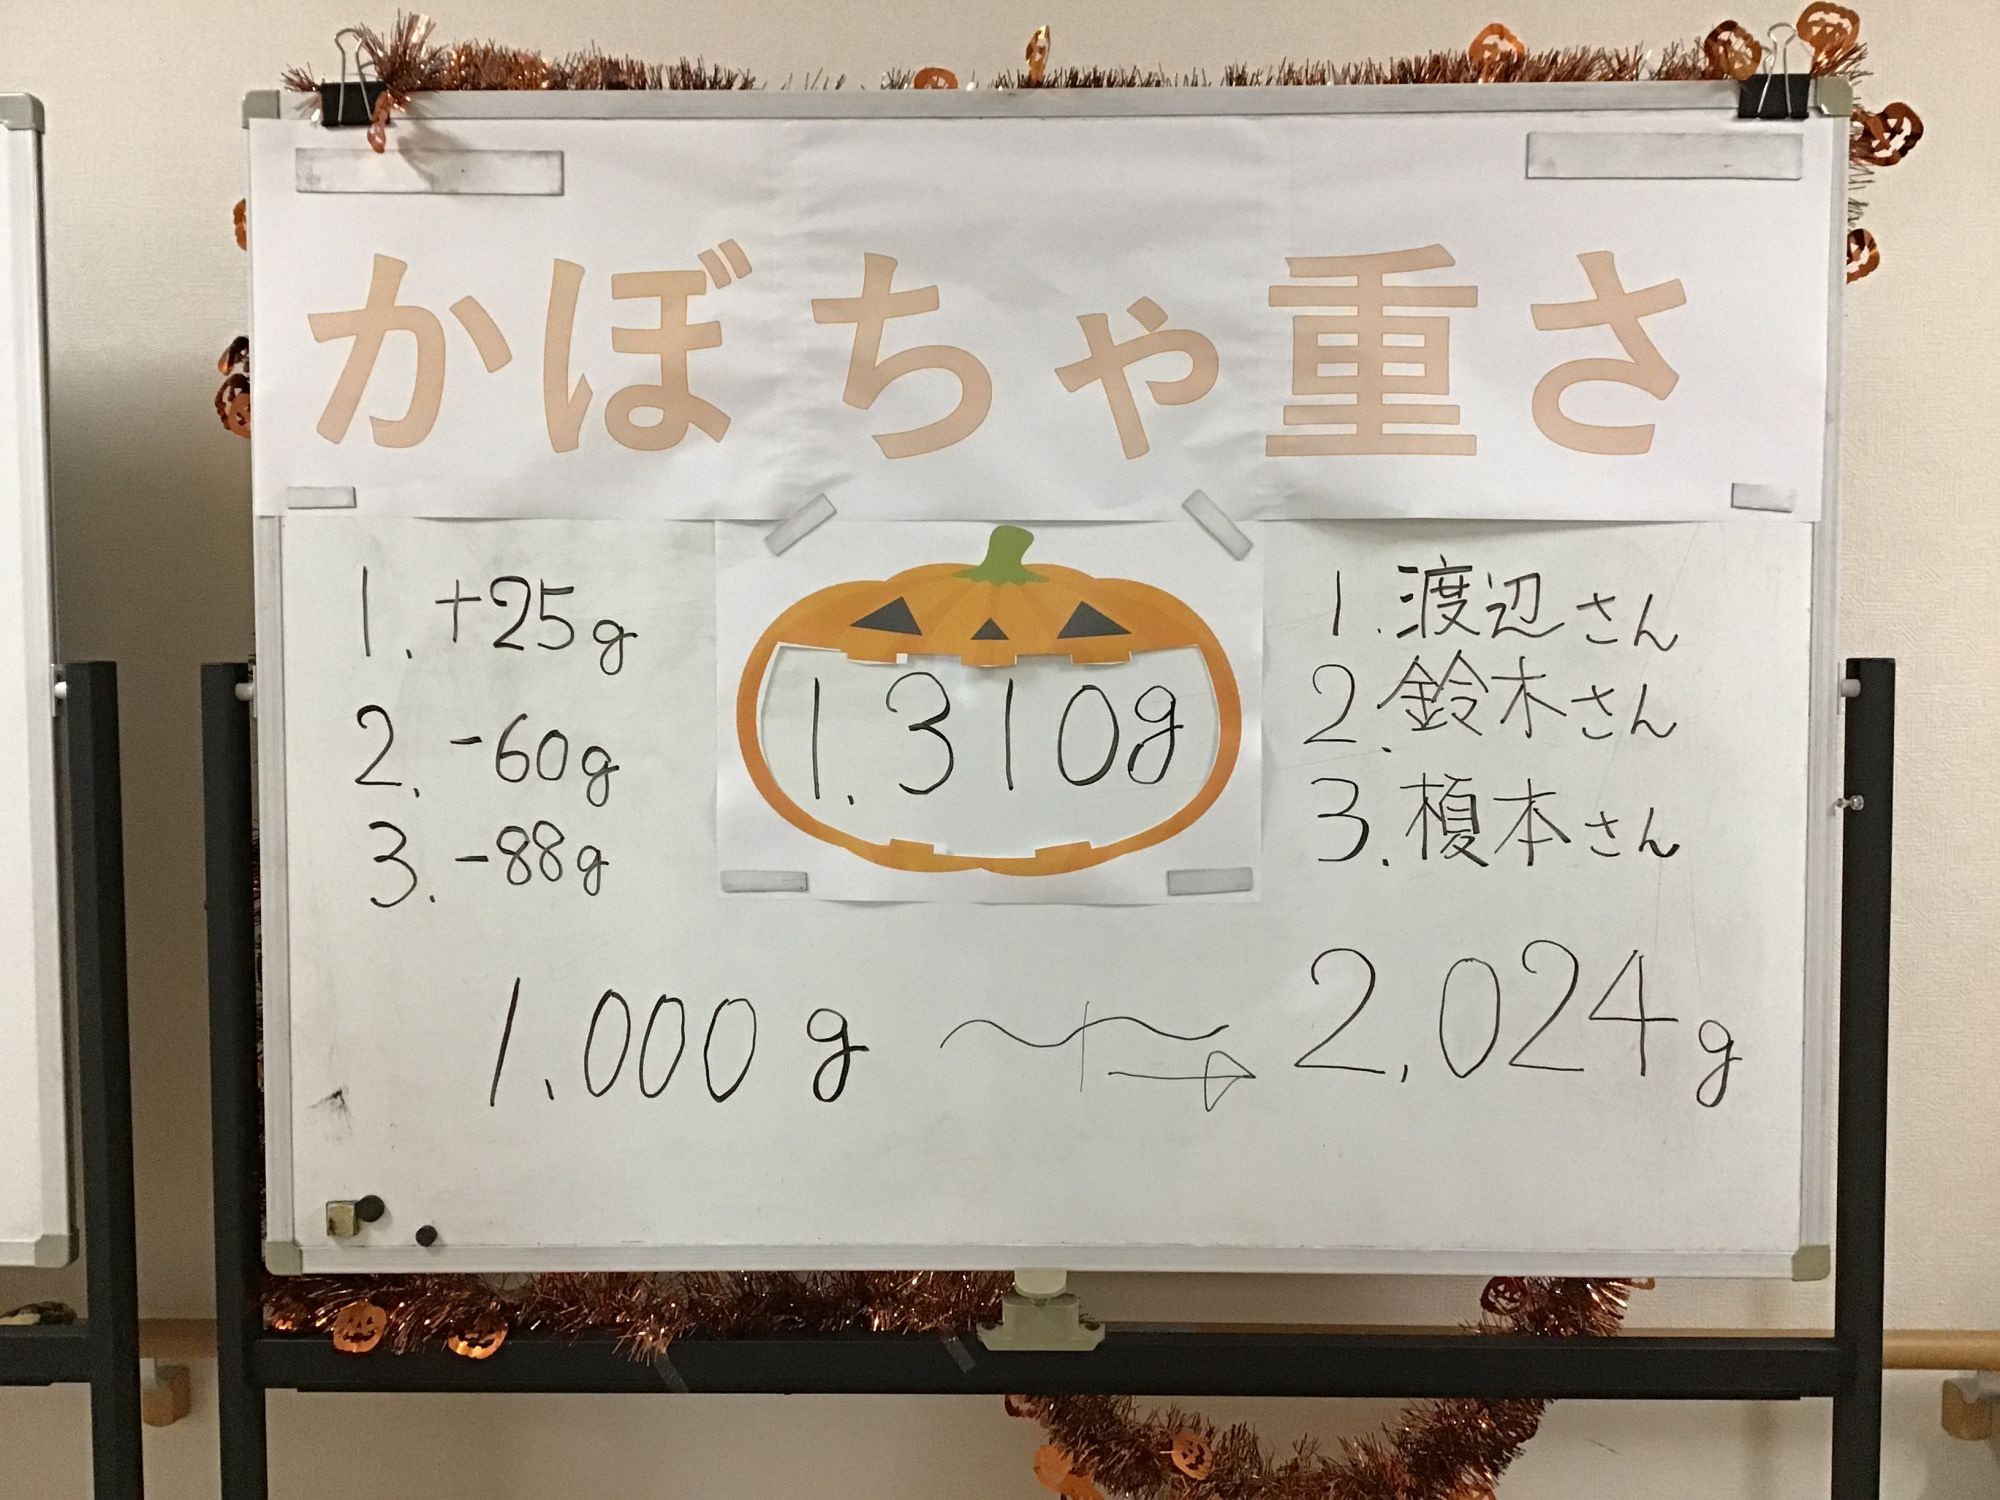 かぼちゃ重さ
1. +25g
2. -60g
3. -88g
1.310g
1. 渡辺さん
2. 鈴木さん
3. 榎本さん
1.000g 〜 2.024g